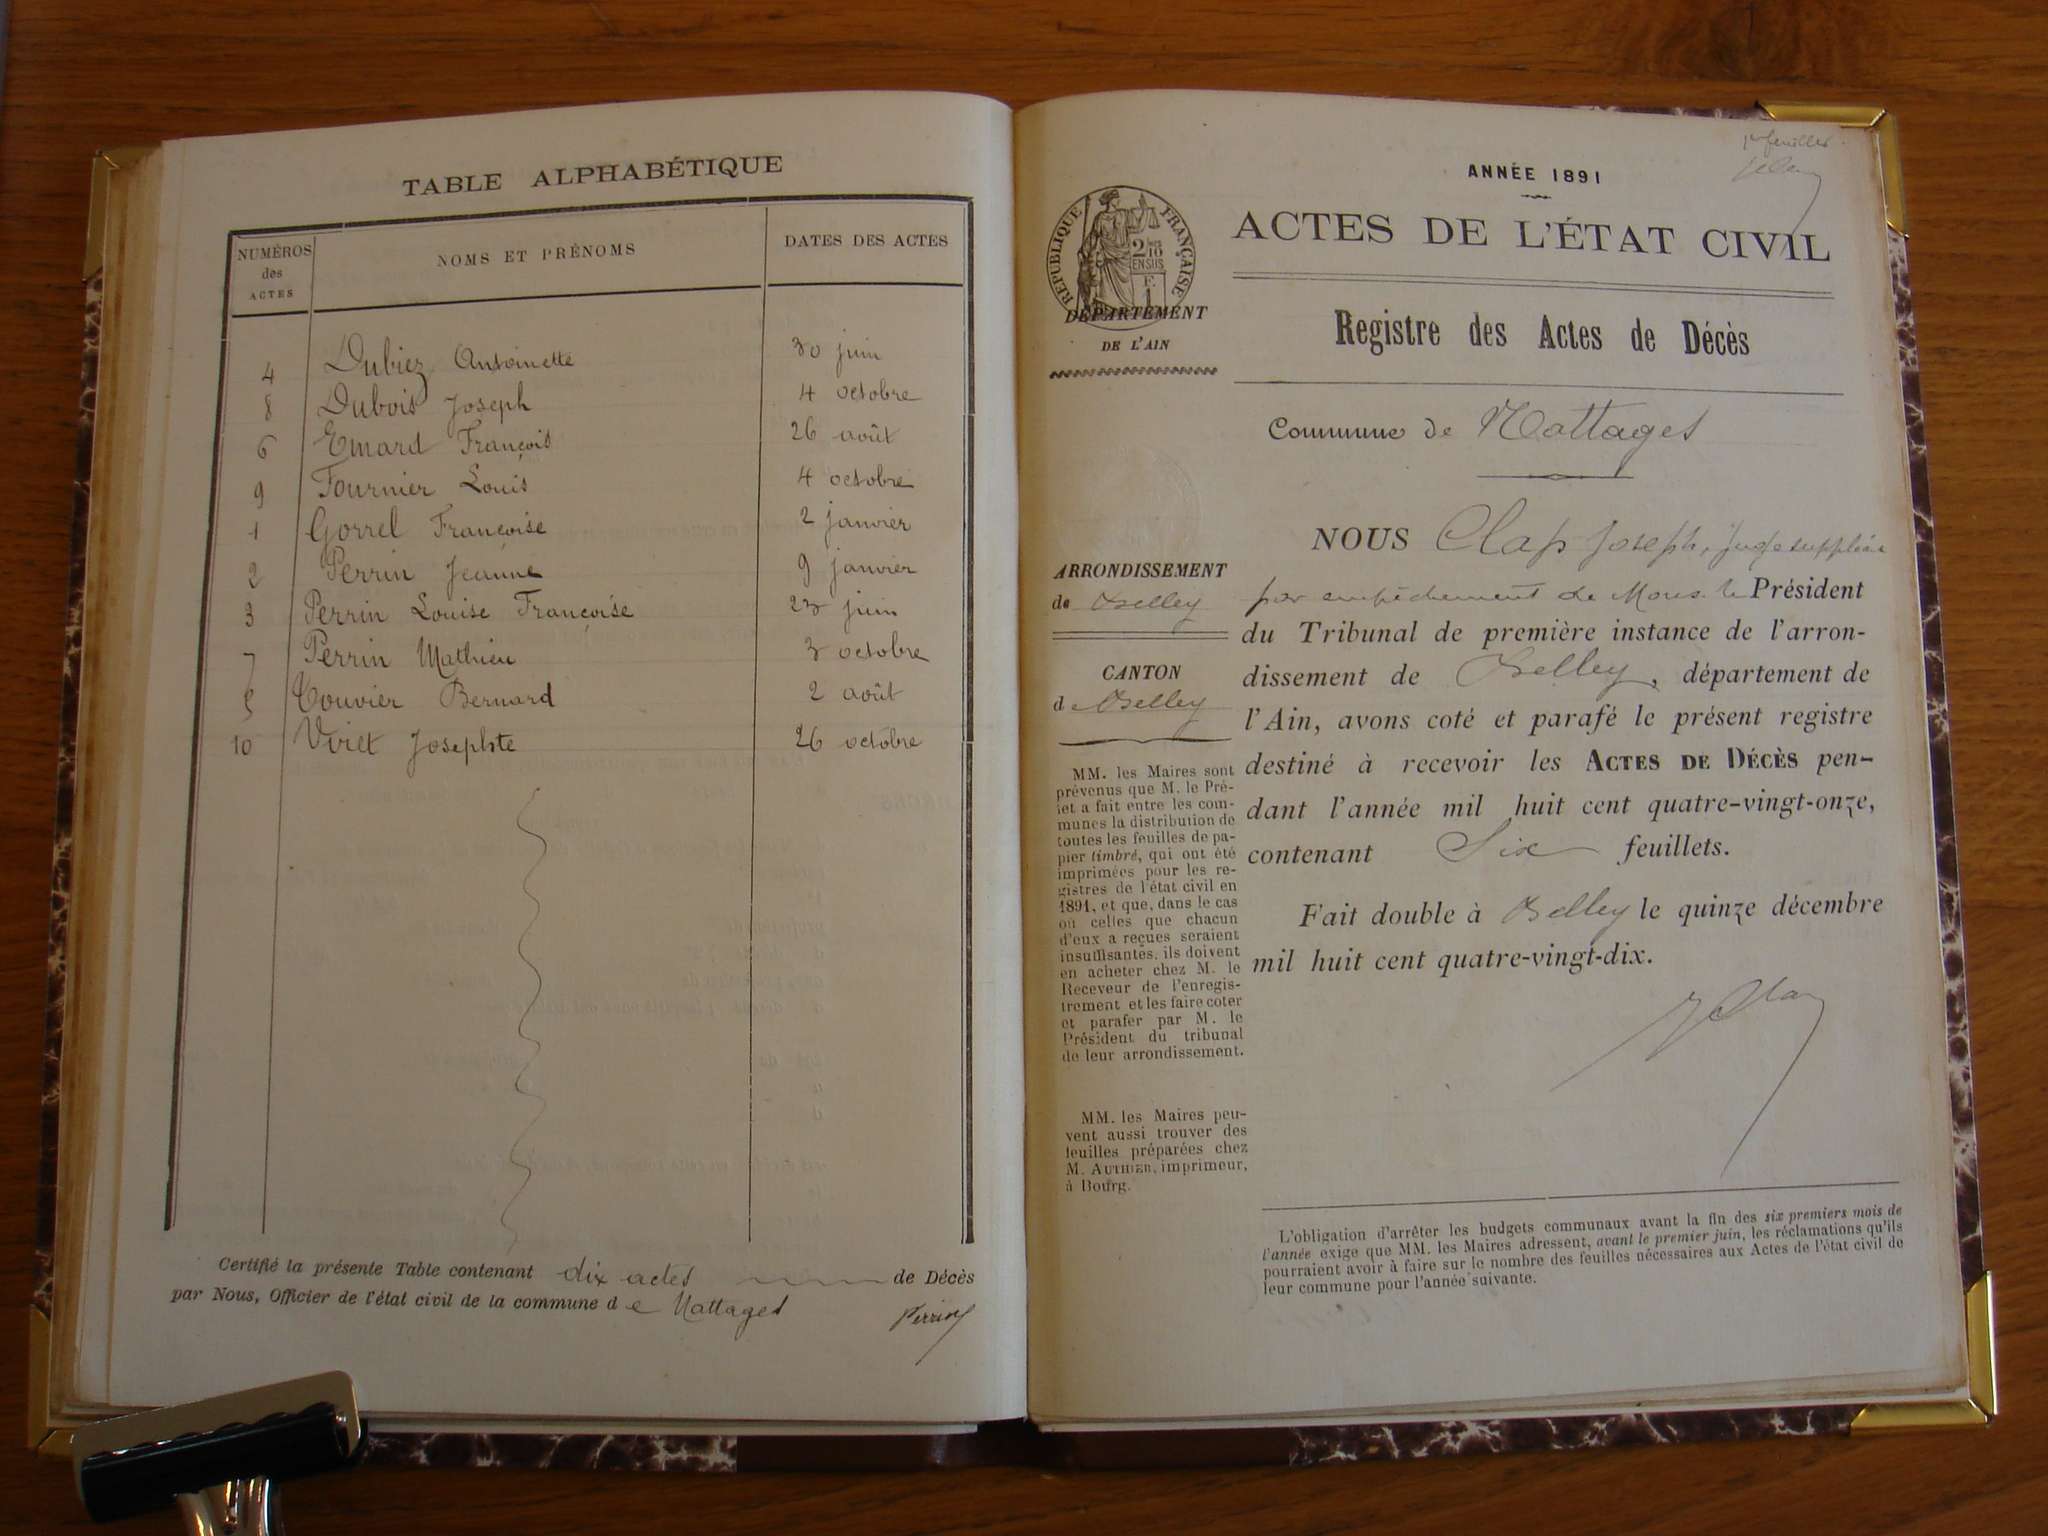 TABLE ALPHABÉTIQUE
NUMÉROS des ACTES NOMS ET PRÉNOMS DATES DES ACTES
4 Dubiez Antoinette 30 juin
8 Dubois Joseph 4 octobre
6 Emard François 26 août
9 Fournier Louis 4 octobre
1 Gorrel Françoise 2 janvier
2 Perrin Jeanne 9 janvier
3 Perrin Louise Françoise 23 juin
7 Perrin Mathieu 3 octobre
5 Touvier Bernard 2 août
10 Viviet Josephte 26 octobre
Certifié la présente Table contenant dix actes de Décès
par Nous, Officier de l'état civil de la commune de Nattages
Perrin
1er feuillet
ANNÉE 1891
ACTES DE L'ÉTAT CIVIL
RÉPUBLIQUE FRANÇAISE
2/10 EN SUS
F. 1
DÉPARTEMENT
DE L'AIN
Registre des Actes de Décès
Commune de Nattages
ARRONDISSEMENT
de Belley
CANTON
de Belley
MM. les Maires sont
prévenus que M. le Pré-
fet a fait entre les com-
munes la distribution de
toutes les feuilles de pa-
pier timbré, qui ont été
imprimées pour les re-
gistres de l'état civil en
1891, et que, dans le cas
où celles que chacun
d'eux a reçues seraient
insuffisantes, ils doivent
en acheter chez M. le
Receveur de l'enregis-
trement et les faire coter
et parafer par M. le
Président du tribunal
de leur arrondissement.
MM. les Maires peu-
vent aussi trouver des
feuilles préparées chez
M. AUTHIER, imprimeur,
à Bourg.
NOUS Clap Joseph, juge suppléant
par empêchement de Mons. le Président
du Tribunal de première instance de l'arron-
dissement de Belley, département de
l'Ain, avons coté et parafé le présent registre
destiné à recevoir les ACTES DE DÉCÈS pen-
dant l'année mil huit cent quatre-vingt-onze,
contenant Six feuillets.
Fait double à Belley le quinze décembre
mil huit cent quatre-vingt-dix.
L'obligation d'arrêter les budgets communaux avant la fin des six premiers mois de
l'année exige que MM. les Maires adressent, avant le premier juin, les réclamations qu'ils
pourraient avoir à faire sur le nombre des feuilles nécessaires aux Actes de l'état civil de
leur commune pour l'année suivante.